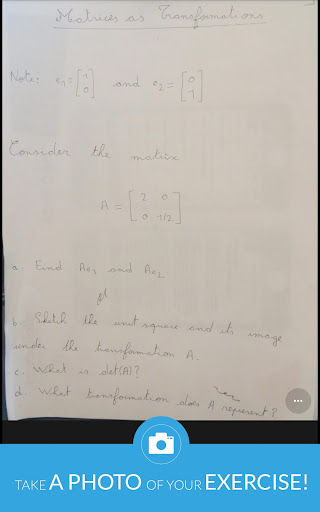 Matrices as Transformations
Note: e₁ = [1 0] and e₂ = [0 1]
Consider the matrix
A = [2 0 0 1/2]
a. Find Ae₁ and Ae₂
b. Sketch the unit square and its image
under the transformation A.
c. What is det(A)?
d. What transformation does A represent?
TAKE A PHOTO OF YOUR EXERCISE!